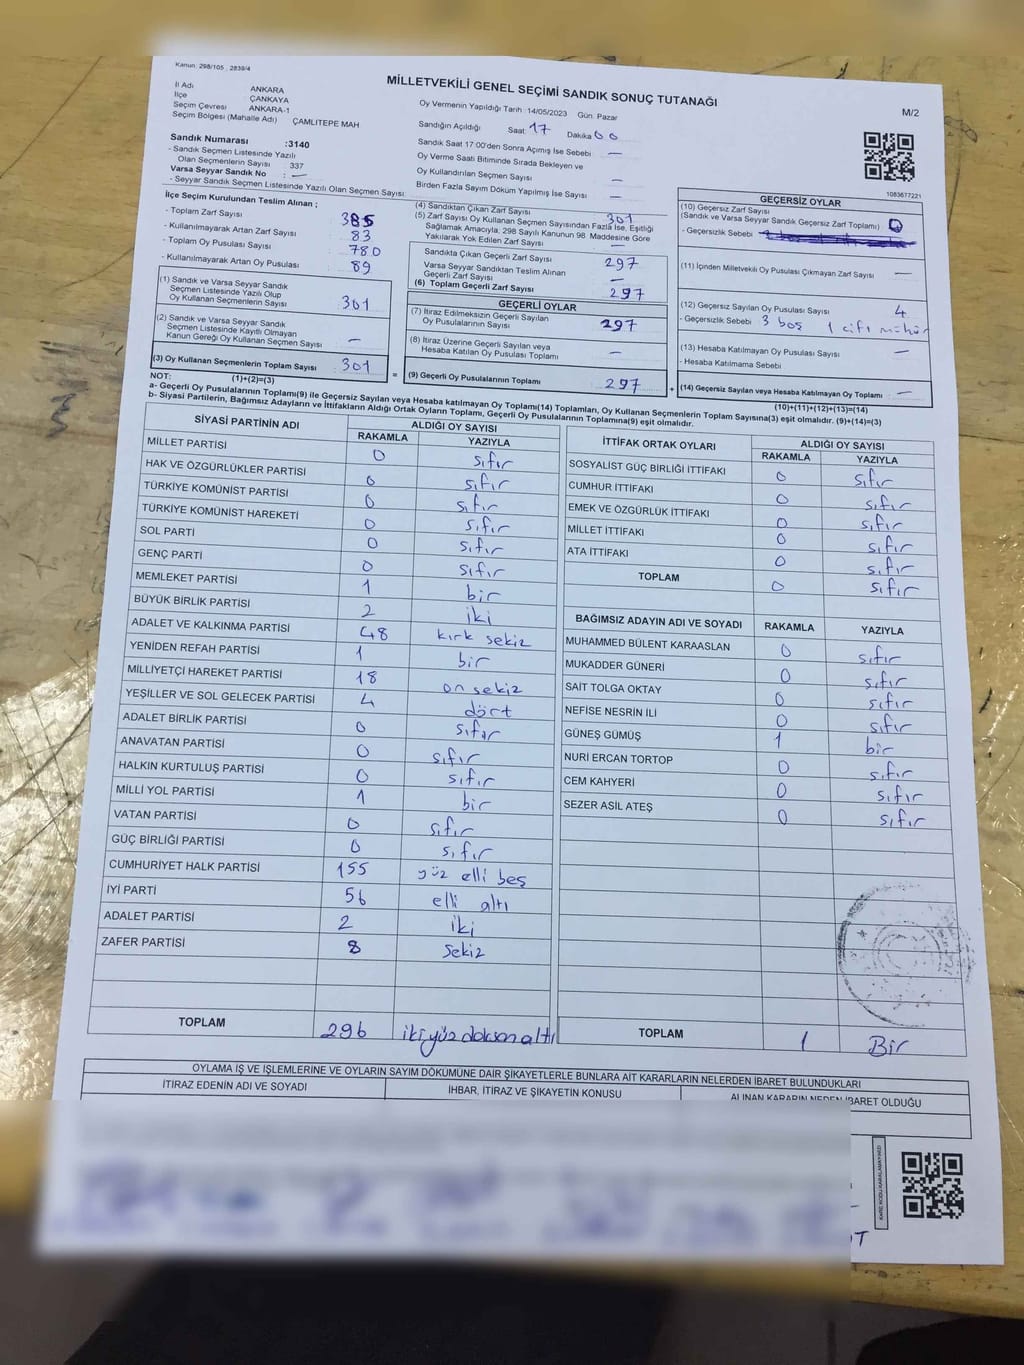 Kanun: 298/105 , 2839/4
MİLLETVEKİLİ GENEL SEÇİMİ SANDIK SONUÇ TUTANAĞI
M/2
İl Adı ANKARA
İlçe ÇANKAYA
Seçim Çevresi ANKARA-1
Seçim Bölgesi (Mahalle Adı) ÇAMLITEPE MAH
Sandık Numarası :3140
- Sandık Seçmen Listesinde Yazılı
Olan Seçmenlerin Sayısı : 337
Varsa Seyyar Sandık No : —
- Seyyar Sandık Seçmen Listesinde Yazılı Olan Seçmen Sayısı:
Oy Vermenin Yapıldığı Tarih :14/05/2023 Gün: Pazar
Sandığın Açıldığı Saat: 17 Dakika 00
Sandık Saat 17:00'den Sonra Açımış İse Sebebi —
Oy Verme Saati Bitiminde Sırada Bekleyen ve
Oy Kullandırılan Seçmen Sayısı —
Birden Fazla Sayım Döküm Yapılmış İse Sayısı —
1083677221
İlçe Seçim Kurulundan Teslim Alınan ;
- Toplam Zarf Sayısı 385
- Kullanılmayarak Artan Zarf Sayısı 83
- Toplam Oy Pusulası Sayısı 780
- Kullanılmayarak Artan Oy Pusulası 89
(1) Sandık ve Varsa Seyyar Sandık
Seçmen Listesinde Yazılı Olup
Oy Kullanan Seçmenlerin Sayısı 301
(2) Sandık ve Varsa Seyyar Sandık
Seçmen Listesinde Kayıtlı Olmayan
Kanun Gereği Oy Kullanan Seçmen Sayısı —
(3) Oy Kullanan Seçmenlerin Toplam Sayısı 301
(1)+(2)=(3)
(4) Sandıktan Çıkan Zarf Sayısı 301
(5) Zarf Sayısı Oy Kullanan Seçmen Sayısından Fazla İse, Eşitliği
Sağlamak Amacıyla, 298 Sayılı Kanunun 98. Maddesine Göre
Yakılarak Yok Edilen Zarf Sayısı
Sandıkta Çıkan Geçerli Zarf Sayısı 297
Varsa Seyyar Sandıktan Teslim Alınan
Geçerli Zarf Sayısı —
(6) Toplam Geçerli Zarf Sayısı 297
GEÇERLİ OYLAR
(7) İtiraz Edilmeksizin Geçerli Sayılan
Oy Pusulalarının Sayısı 297
(8) İtiraz Üzerine Geçerli Sayılan veya
Hesaba Katılan Oy Pusulası Toplamı —
= (9) Geçerli Oy Pusulalarının Toplamı 297
GEÇERSİZ OYLAR
(10) Geçersiz Zarf Sayısı
(Sandık ve Varsa Seyyar Sandık Geçersiz Zarf Toplamı) 0
- Geçersizlik Sebebi
(11) İçinden Milletvekili Oy Pusulası Çıkmayan Zarf Sayısı —
(12) Geçersiz Sayılan Oy Pusulası Sayısı 4
- Geçersizlik Sebebi 3 boş 1 çift mühür
(13) Hesaba Katılmayan Oy Pusulası Sayısı —
- Hesaba Katılmama Sebebi
+ (14) Geçersiz Sayılan veya Hesaba Katılmayan Oy Toplamı —
(10)+(11)+(12)+(13)=(14)
NOT:
a- Geçerli Oy Pusulalarının Toplamı(9) ile Geçersiz Sayılan veya Hesaba katılmayan Oy Toplamı(14) Toplamları, Oy Kullanan Seçmenlerin Toplam Sayısına(3) eşit olmalıdır. (9)+(14)=(3)
b- Siyasi Partilerin, Bağımsız Adayların ve İttifakların Aldığı Ortak Oyların Toplamı, Geçerli Oy Pusulalarının Toplamına(9) eşit olmalıdır.
SİYASİ PARTİNİN ADI ALDIĞI OY SAYISI
RAKAMLA YAZIYLA
MİLLET PARTİSİ 0 sıfır
HAK VE ÖZGÜRLÜKLER PARTİSİ 0 sıfır
TÜRKİYE KOMÜNİST PARTİSİ 0 sıfır
TÜRKİYE KOMÜNİST HAREKETİ 0 sıfır
SOL PARTİ 0 sıfır
GENÇ PARTİ 0 sıfır
MEMLEKET PARTİSİ 1 bir
BÜYÜK BİRLİK PARTİSİ 2 iki
ADALET VE KALKINMA PARTİSİ 48 kırk sekiz
YENİDEN REFAH PARTİSİ 1 bir
MİLLİYETÇİ HAREKET PARTİSİ 18 on sekiz
YEŞİLLER VE SOL GELECEK PARTİSİ 4 dört
ADALET BİRLİK PARTİSİ 0 sıfır
ANAVATAN PARTİSİ 0 sıfır
HALKIN KURTULUŞ PARTİSİ 0 sıfır
MİLLİ YOL PARTİSİ 1 bir
VATAN PARTİSİ 0 sıfır
GÜÇ BİRLİĞİ PARTİSİ 0 sıfır
CUMHURİYET HALK PARTİSİ 155 yüz elli beş
İYİ PARTİ 56 elli altı
ADALET PARTİSİ 2 iki
ZAFER PARTİSİ 8 sekiz
TOPLAM 296 ikiyüzdoksanaltı
İTTİFAK ORTAK OYLARI ALDIĞI OY SAYISI
RAKAMLA YAZIYLA
SOSYALİST GÜÇ BİRLİĞİ İTTİFAKI 0 sıfır
CUMHUR İTTİFAKI 0 sıfır
EMEK VE ÖZGÜRLÜK İTTİFAKI 0 sıfır
MİLLET İTTİFAKI 0 sıfır
ATA İTTİFAKI 0 sıfır
TOPLAM 0 sıfır
BAĞIMSIZ ADAYIN ADI VE SOYADI RAKAMLA YAZIYLA
MUHAMMED BÜLENT KARAASLAN 0 sıfır
MUKADDER GÜNERİ 0 sıfır
SAİT TOLGA OKTAY 0 sıfır
NEFİSE NESRİN İLİ 0 sıfır
GÜNEŞ GÜMÜŞ 1 bir
NURİ ERCAN TORTOP 0 sıfır
CEM KAHYERİ 0 sıfır
SEZER ASIL ATEŞ 0 sıfır
TOPLAM 1 Bir
OYLAMA İŞ VE İŞLEMLERİNE VE OYLARIN SAYIM DÖKÜMÜNE DAİR ŞİKAYETLERLE BUNLARA AİT KARARLARIN NELERDEN İBARET BULUNDUKLARI
İTİRAZ EDENİN ADI VE SOYADI
İHBAR, İTİRAZ VE ŞİKAYETİN KONUSU
ALINAN KARARIN NEDEN İBARET OLDUĞU